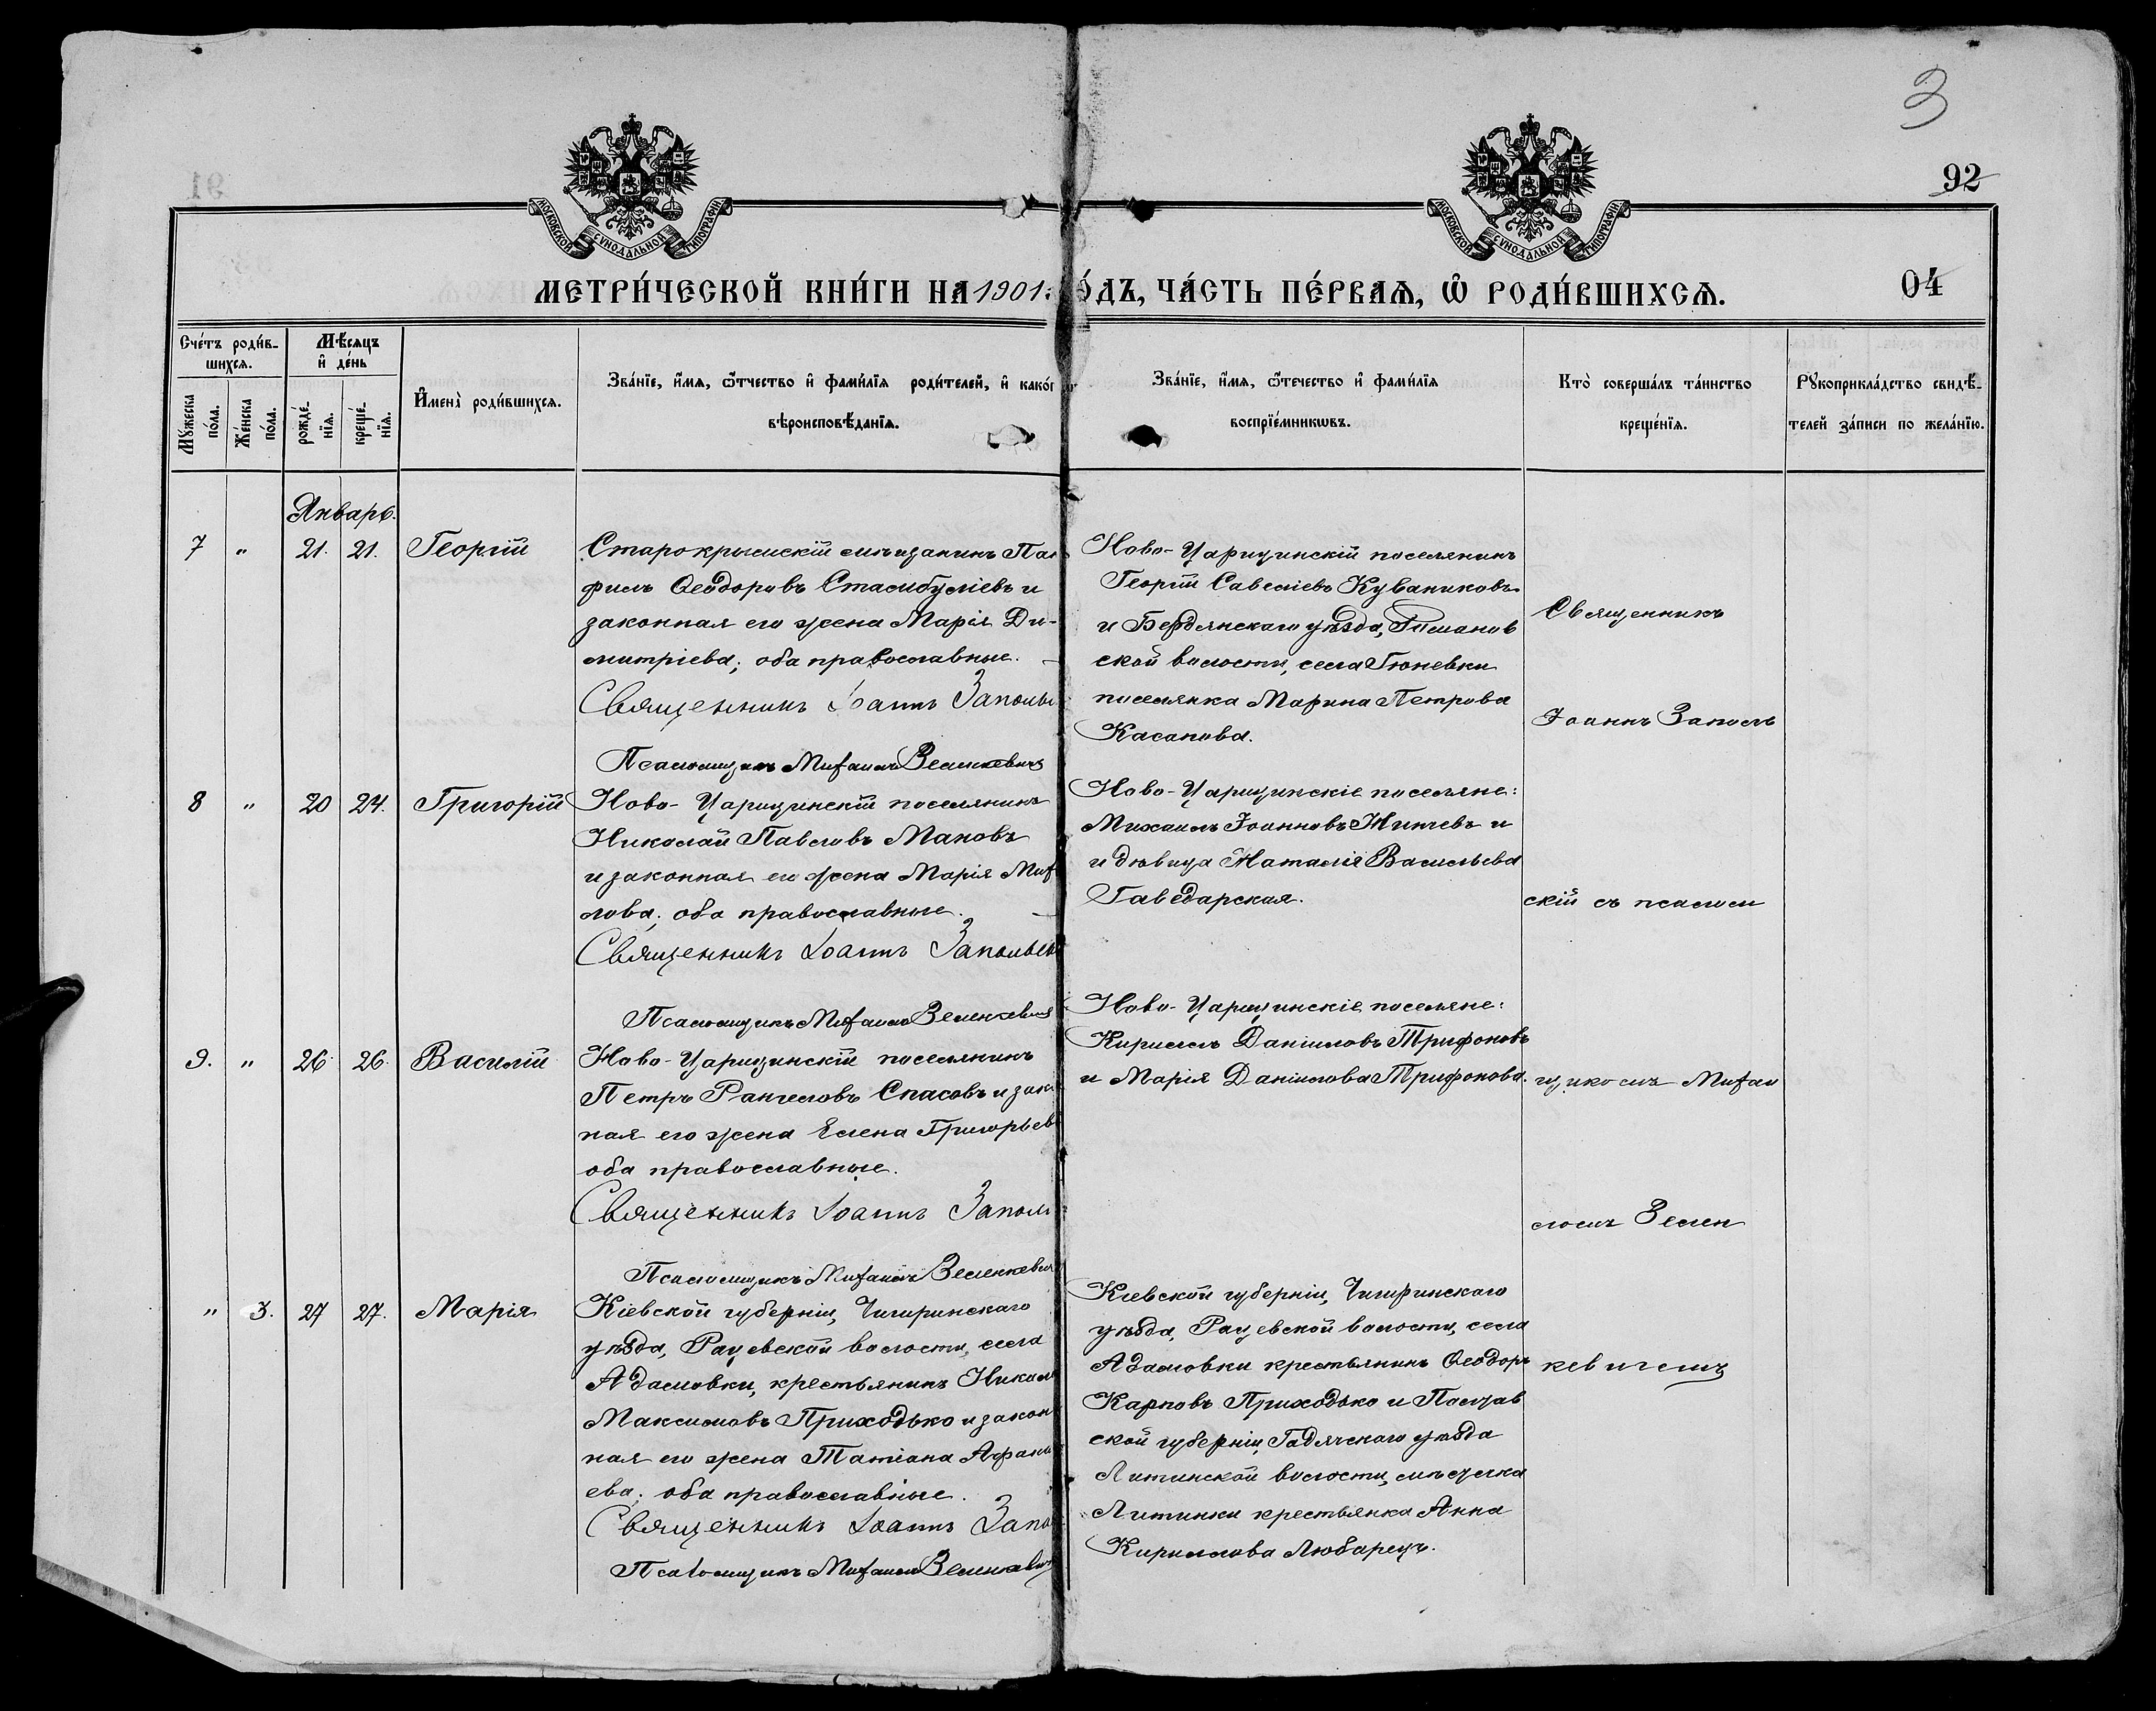 3
92
МОСКОВСКОЙ СУНОДАЛЬНОЙ ТИПОГРАФІИ
МОСКОВСКОЙ СУНОДАЛЬНОЙ ТИПОГРАФІИ
МЕТРИ́ЧЕСКОЙ КНИ́ГИ НА 1901. О́ДЪ, ЧА́СТЬ ПЕ́РВАѦ, Ѡ҆ РОДИ́ВШИХСѦ.
04
Сче́тъ роди́в-
шихсѧ.
Мꙋ́жеска по́ла.
Же́нска по́ла.
Мѣ́сѧцъ
и҆ де́нь
рожде́-нїѧ.
креще́-нїѧ.
И҆мена̀ роди́вшихсѧ.
Зва́нїе, и҆́мѧ, ѻ҆́тчество и҆ фами́лїѧ роди́телей, и҆ како́г
вѣроисповѣ́данїѧ.
Зва́нїе, и҆́мѧ, ѻ҆́течество и҆ фами́лїѧ
воспрїе́мникѡвъ.
Кто̀ соверша́лъ та́инство
креще́нїѧ.
Рꙋкоприкла́дство свидѣ́-
телей за́писи по жела́нїю.
Январь.
7 " 21. 21. Георгій
Старокрымскій мѣщанинъ Пан
филъ Ѳеодоровъ Стамбуліевъ и
законная его жена Марія Ди-
митріева; оба православные. —
Священникъ Іоаннъ Заполь
Псаломщикъ Михаилъ Зеленкевичъ
Ново-Царицинскій поселянинъ
Георгій Савеліевъ Куваниковъ
и Бердянскаго уѣзда,
ской волости, села Гюневки
поселянка Марина Петрова
Касапова.
Священникъ
Іоаннъ Заполь
8 " 20 24. Григорій
Ново-Царицинскій поселянинъ
Николай Павловъ Маковъ
и законная его жена Марія Миха
лова; оба православные. —
Священникъ Іоаннъ Запольск
Псаломщикъ Михаилъ Зеленкевичъ
Ново-Царицинскіе поселяне:
Михаилъ Іоанновъ Жинчевъ и
и дѣвица Наталія Васильева
Гаведарская.
скій съ псалом
9. " 26. 26. Василій
Ново-Царицинскій поселянинъ
Петръ Рангеловъ Спасовъ и зако
ная его жена Елена Григорьев
оба православные.
Священникъ Іоаннъ Заполь
Псаломщикъ Михаилъ Зеленкевич
Ново-Царицинскіе поселяне:
Кириллъ Даніиловъ Трифоновъ
и Марія Даніилова Трифонова.
щикомъ Михаи
ломъ Зелен
" 3. 27 27. Марія
Кіевской губерніи, Чигиринскаго
уѣзда, Рацевской волости, села
Адамовки, крестьянинъ Никола
Максимовъ Приходько и закон
ная его жена Татіана Афанас
ева; оба православные.
Священникъ Іоаннъ Запо
Псаломщикъ Михаилъ Зеленкевич
Кіевской губерніи, Чигиринскаго
уѣзда, Рацевской волости, села
Адамовки крестьянинъ Ѳеодоръ
Карповъ Приходько и Полтав
ской губерніи, Гадячскаго уѣзда
Лютинской волости, мѣстечка
Лютинки крестьянка Анна
Кириллова Любарецъ.
кевичемъ